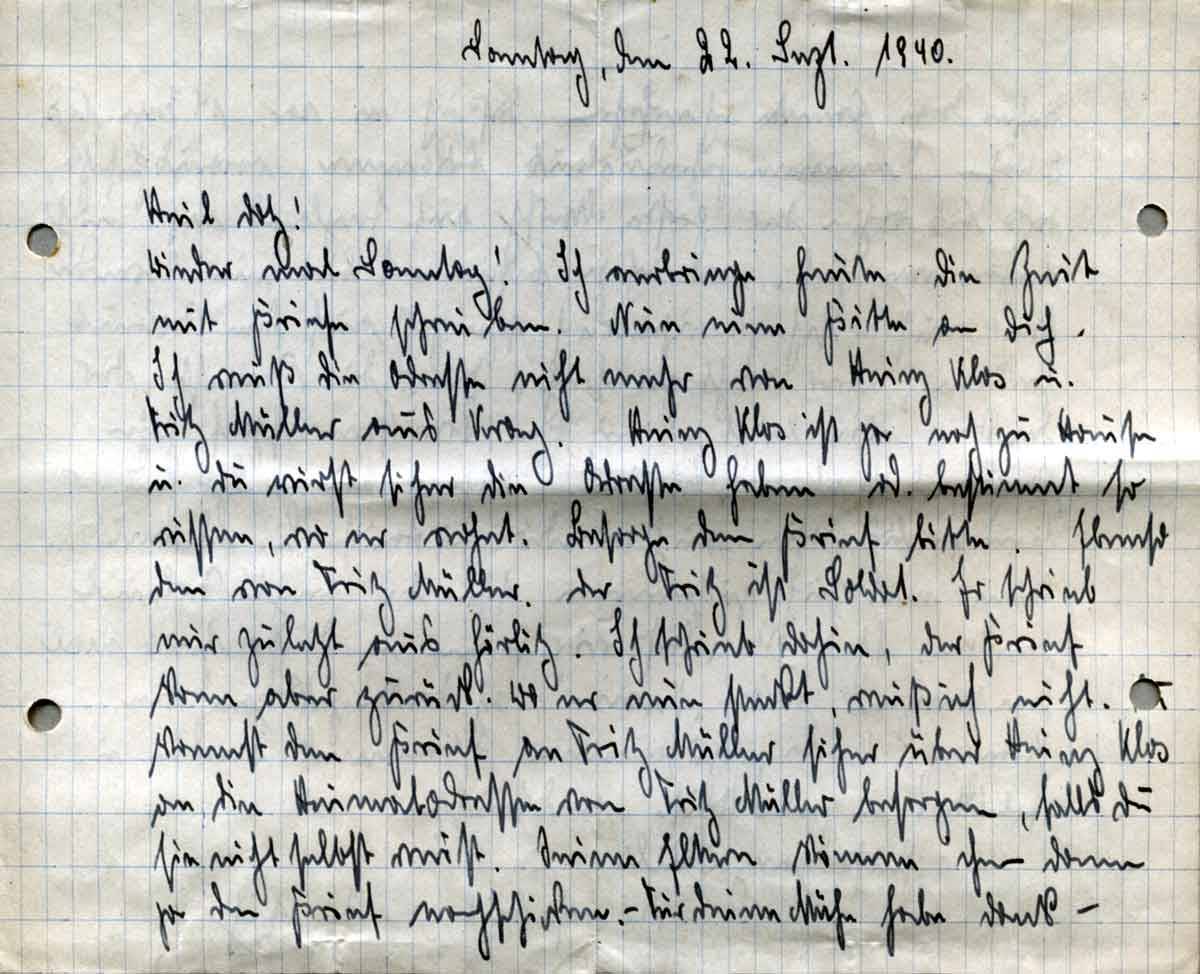 Sonntag, den 22. Sept. 1940.
Heil Dotz!
Wieder mal Sonntag! Ich verbringe heute die Zeit
mit Briefe schreiben. Nun eine Bitte an Dich.
Ich weiß die Adresse nicht mehr von Heinz Klos u.
Fritz Müller aus Krag. Heinz Klos ist ja noch zu Hause
u. Du wirst sicher die Adresse haben od. bestimmt so
wissen, wo er wohnt. Besorge den Brief bitte. Ebenso
den von Fritz Müller. Der Fritz ist Soldat. Er schrieb
mir zuletzt aus Görlitz. Ich schrieb dahin, der Brief
kam aber zurück. Wo er nun steckt, weiß ich nicht.
kannst den Brief an Fritz Müller sicher über Heinz Klos
an die Heimatadresse von Fritz Müller besorgen, falls Du
sie nicht selbst weißt. Seine Eltern können ihm dann
ja den Brief nachschicken. – Für Deine Mühe habe Dank –